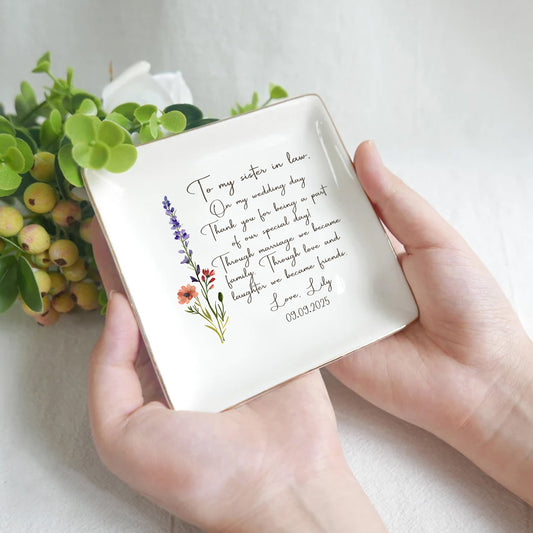 To my sister in law,
On my wedding day
Thank you for being a part
of our special day!
Through marriage we became
family. Through love and
laughter we became friends.
Love, Lily
09.09.2025